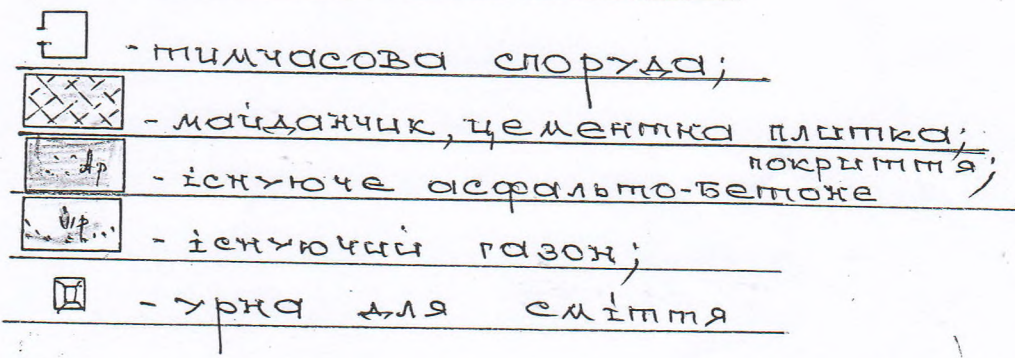 - тимчасова споруда;
- майданчик, цементна плитка;
- існуюче асфальто-бетоне покриття;
- існуючий газон;
- урна для сміття